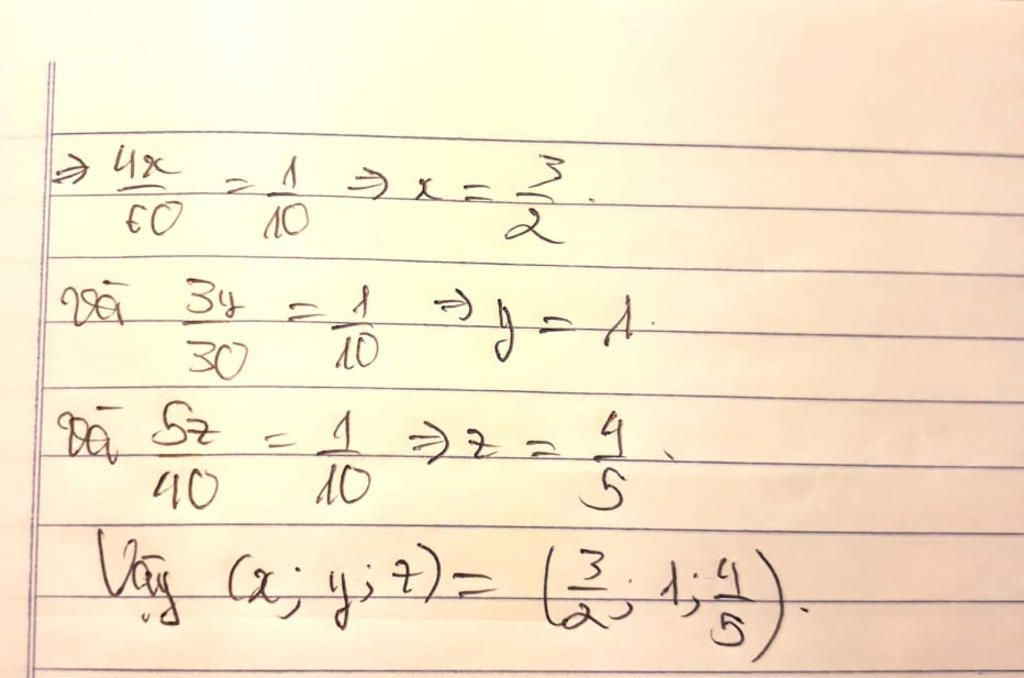 ⇒ 4x/60 = 1/10 ⇒ x = 3/2.
và 3y/30 = 1/10 ⇒ y = 1.
và 5z/40 = 1/10 ⇒ z = 4/5.
Vậy (x; y; z) = (3/2; 1; 4/5).